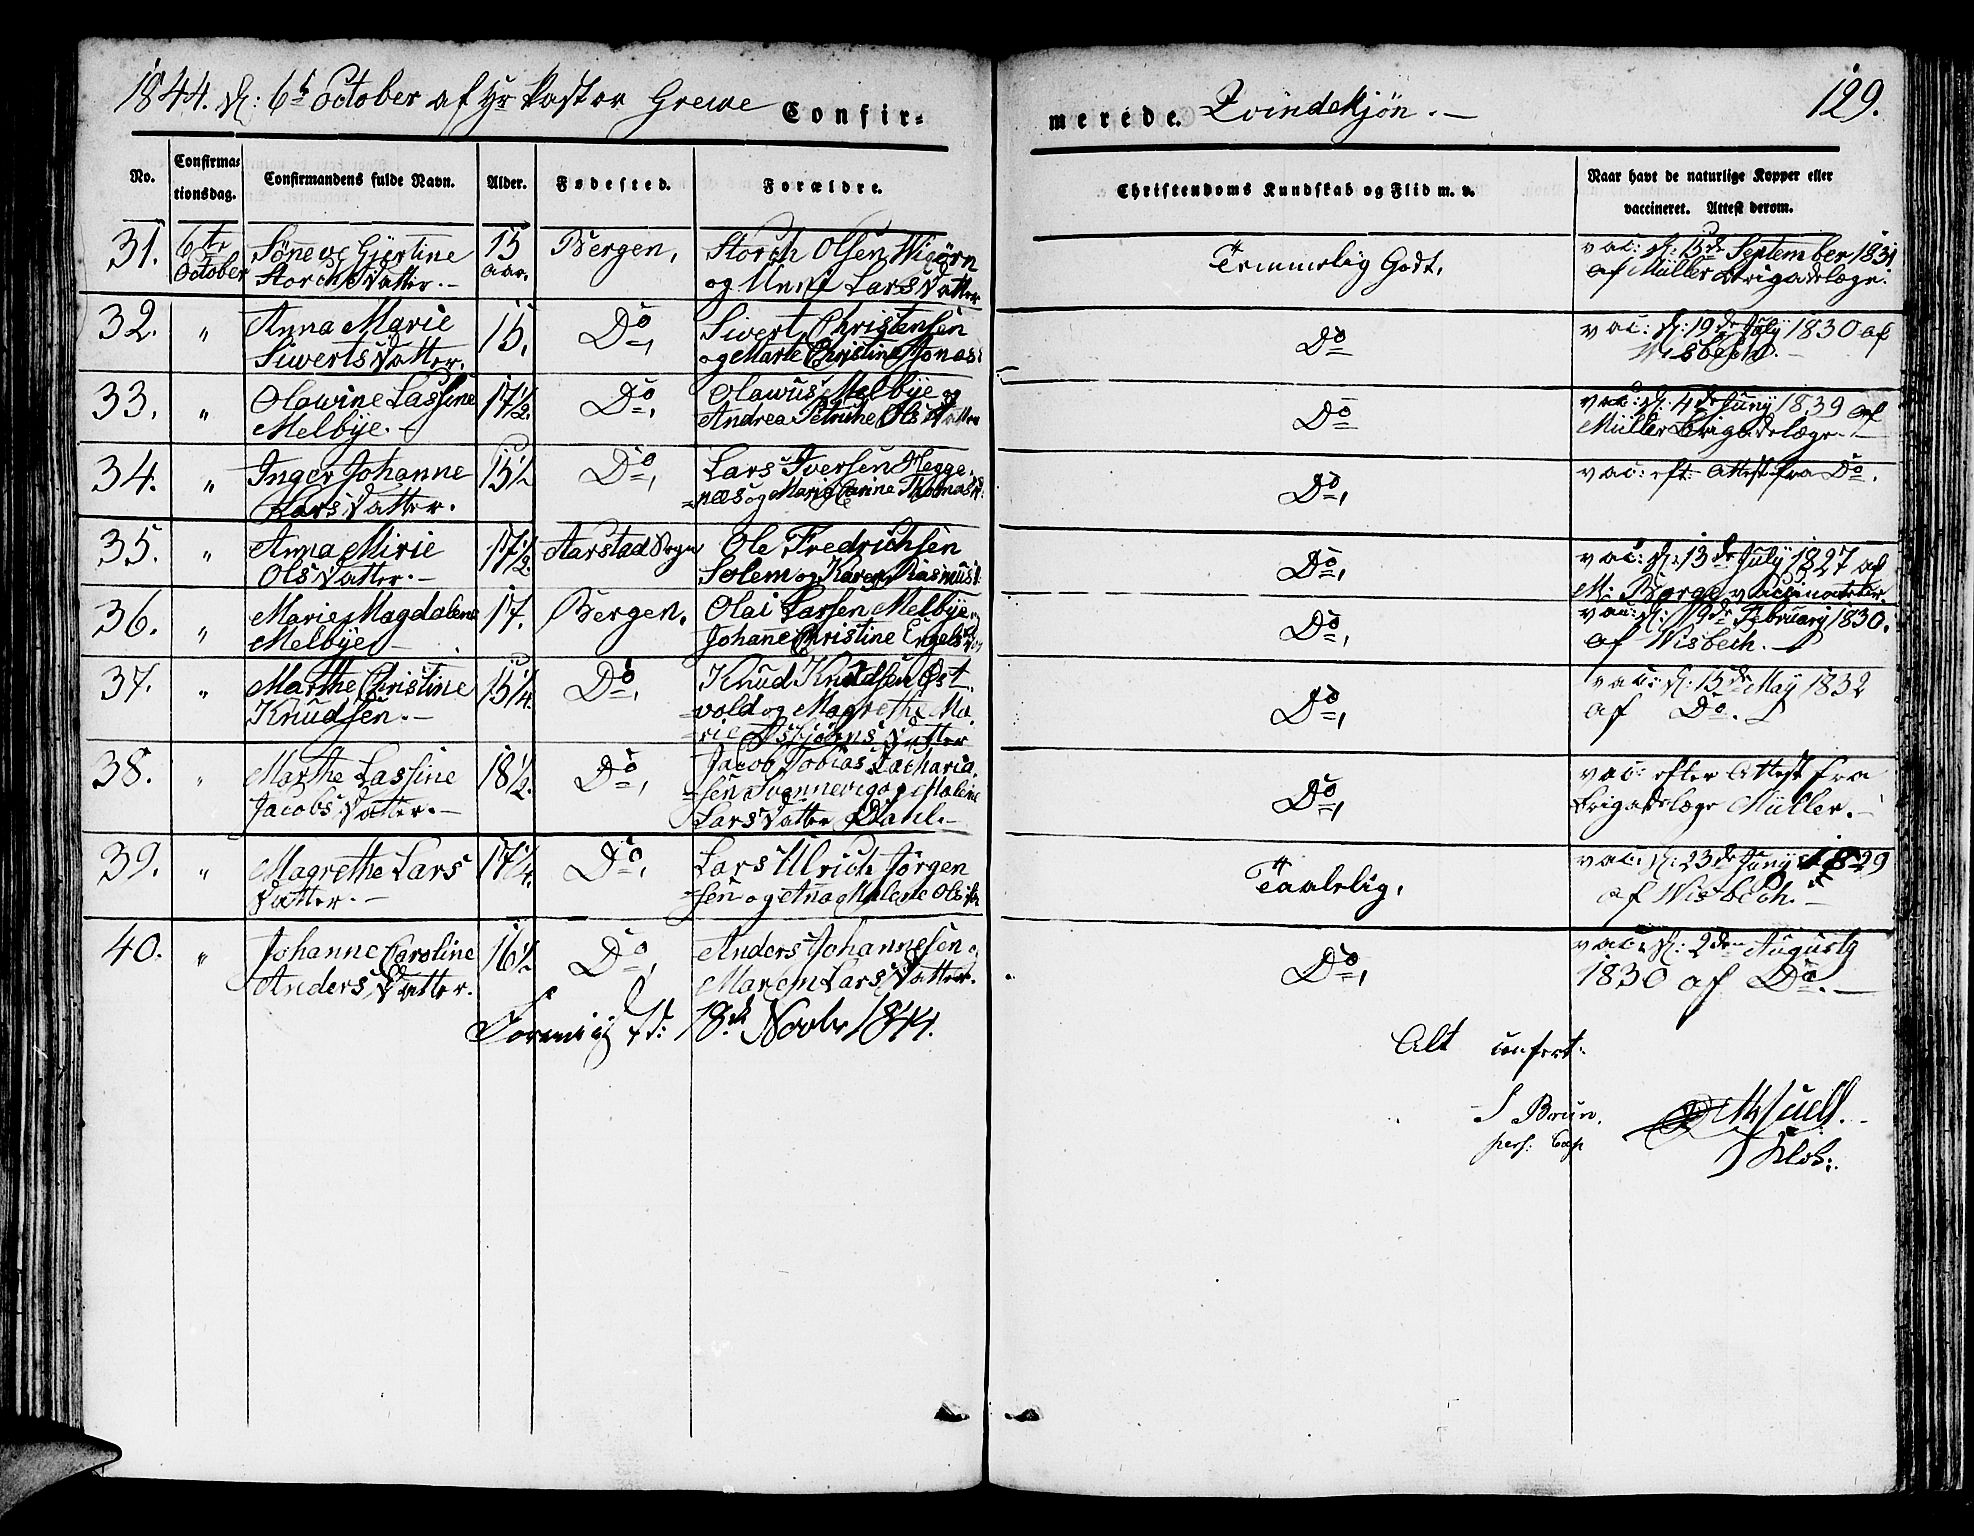 1844. d: 6t October af Hr Pastor Grewe Confir-
merede. Qvindekjøn. 129.
No. Confirma- tionsdag. Confirmandens fulde Navn. Alder. Fødested. Forældre. Christendoms Kundskab og Flid m. v. Naar havt de naturlige Kopper eller vaccineret. Attest derom.
31. 6te October Søneve Gjertine 15 aar. Bergen, Storch Olsen Wigørn Temmelig Godt, vac: d: 15de September 1831
Storchs Datter. og Unni Lars Datter af Müller Brigadelæge.
32. " Anna Marie 15, Do, Sivert Christensen Do vac: d: 19de July 1830 af
Siwerts Datter. og Marte Christine Jonas: Wisbech.
33. " Olawine Lassine 17½. Do, Olawus Melbye og Do vac: d: 4de Juny 1839 af
Melbye. Andrea Petrine Ols Datter Müller Brigadelæge.
34. " Inger Johanne 15½ Do, Lars Iversen Hegge- Do, vac: eft: Attest fra Do.
Lars Datter. næs og Marie Carine Thomas D:
35. " Anna Mirie 17½ Aarstad Sogn Ole Fredrichsen Do, vac: d: 13de July 1827 af
Ols Datter. Solem og Karen Rasmus D: M: Borge vaccinateur
36. " Marie Magdalene 17. Bergen. Olai Larsen Melbye og Do, vac: d: 19de February 1830.
Melbye Johane Christine Engels af Wisbech.
37. " Marthe Christine 15¼. Do, Knud Knudsen Øst- Do, vac: d: 15de May 1832
Knudsen. vold og Magrethe Ma- af Do.
rie Asbjørns Datter
38. " Marthe Lassine 18½. Do, Jacob Tobias Zacharia- Do, vac: efter Attest fra
Jacobs Datter. sen Svannevig og Malene Brigadelæge Müller.
Lars Datter Dahl.
39. " Magrethe Lars 17¼. Do, Lars Ulrich Jørgen Taalelig, vac: d: 23de Juny 1829
Datter. sen og Ana Malene Ols D: af Wisbech.
40. " Johanne Caroline 16½. Do, Anders Johannesen og Do, vac: d: 2den Augusty
Anders Datter. Maren Lars Datter. 1830 af Do.
d: 18de Novbr 1844.
Alt confert:
S Brun,
pers: Cap
Klok: